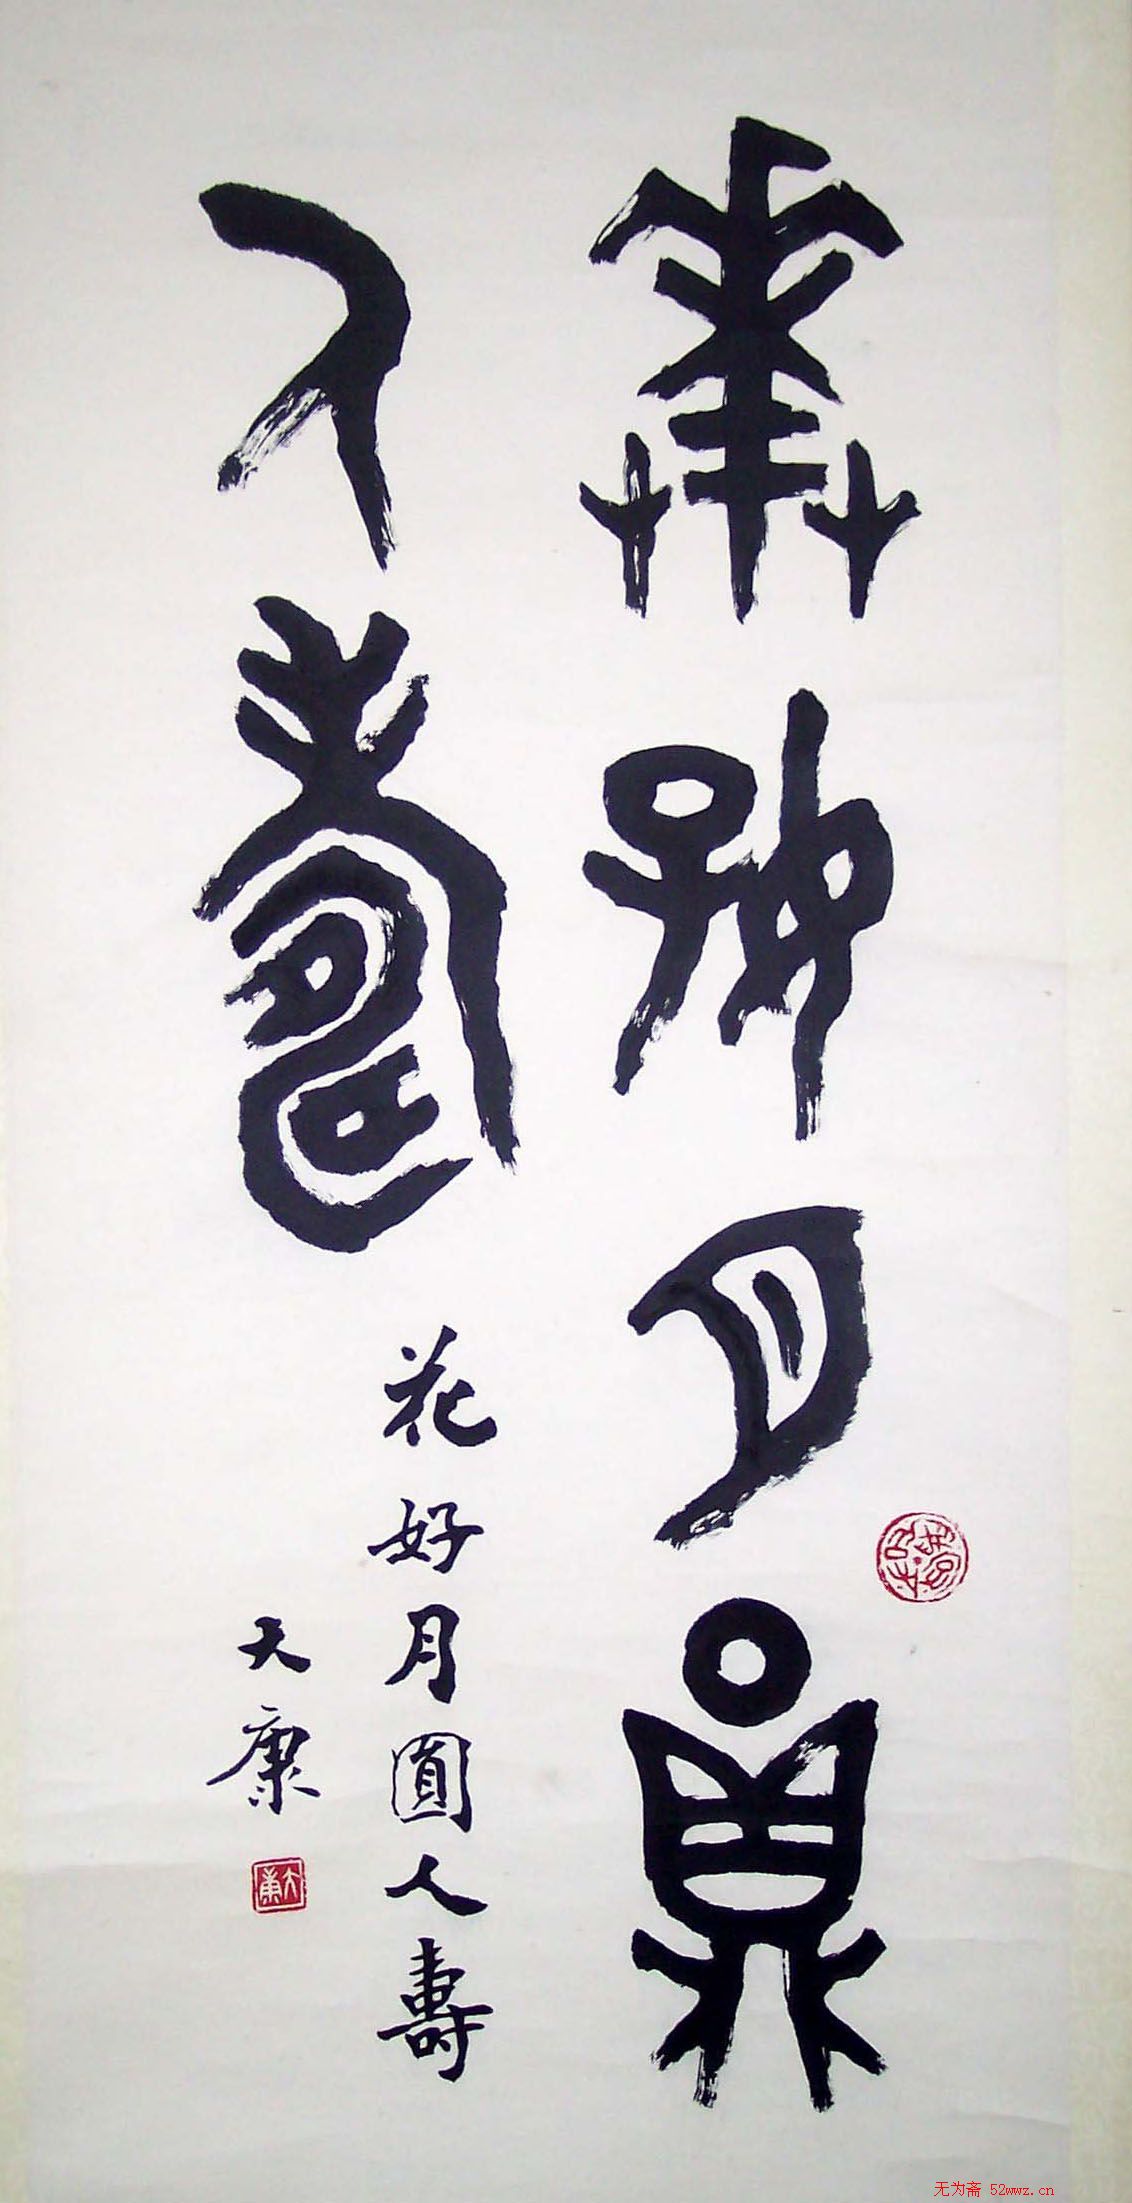 華好月員
人壽
花好月圓人壽
大康
大康
无为斋 52wwz.cn